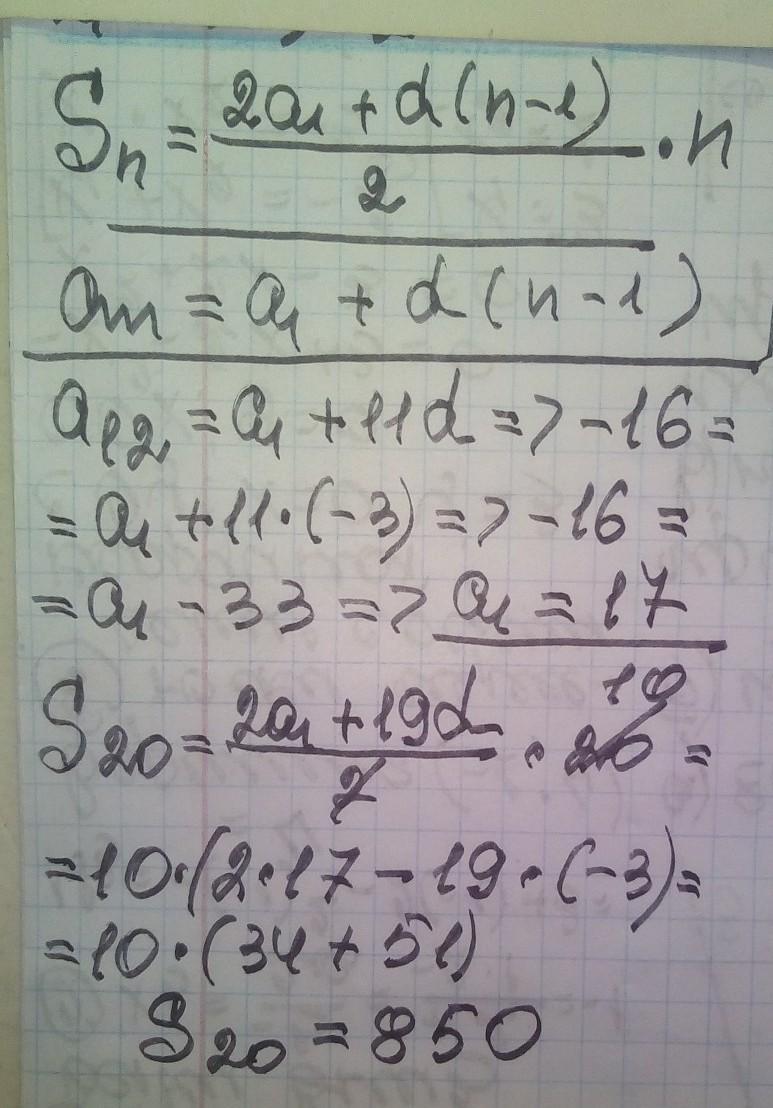 Sn = (2a1 + d(n-1))/2 · n
an = a1 + d(n-1)
a12 = a1 + 11d => -16 =
= a1 + 11·(-3) => -16 =
= a1 - 33 => a1 = 17
S20 = (2a1 + 19d)/2 · 20 10 =
= 10·(2·17 - 19·(-3) =
= 10·(34 + 51)
S20 = 850